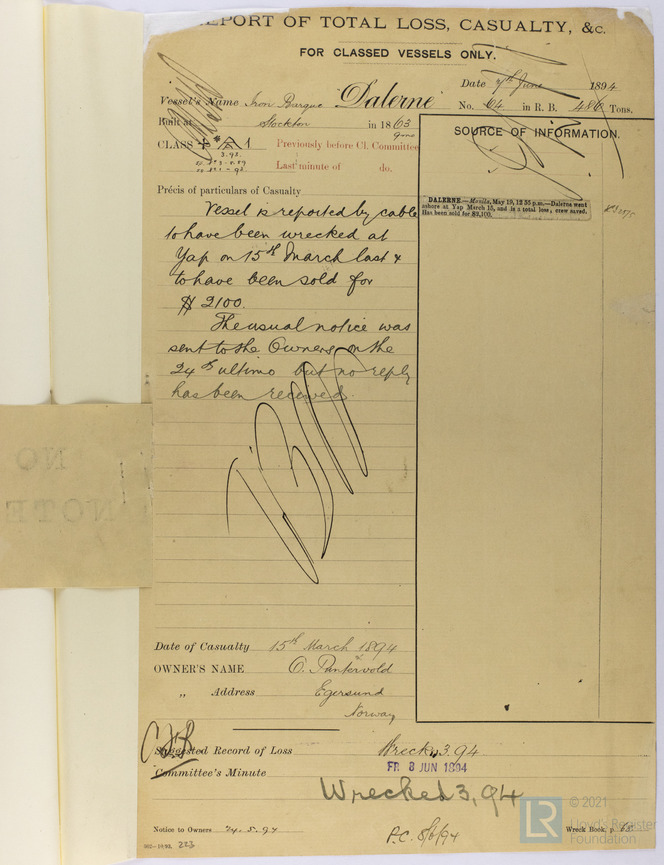 REPORT OF TOTAL LOSS, CASUALTY, &c.
FOR CLASSED VESSELS ONLY.
Date 7th June 1894
Vessel's Name Iron Barque "Dalerne"
No. 64 in R. B. 486 Tons.
Built at Stockton in 1863
CLASS
A 1
3.92
Previously before Cl. Committee
Last minute of do.
SOURCE OF INFORMATION.
Précis of particulars of Casualty
DALERNE.—Manila, May 19, 12 55 p.m.—Dalerne went
ashore at Yap March 15, and is a total loss; crew saved.
Has been sold for $2,100.
Vessel is reported by cable
to have been wrecked at
Yap on 15th March last &
to have been sold for
$ 2100.
The usual notice was
sent to the Owners on the
24th ultimo but no reply
has been received.
NO
NOTE
Date of Casualty 15th March 1894
OWNER'S NAME O. Puntervold
„ Address Egersund
Norway
Suggested Record of Loss Wreck 3.94
Committee's Minute
FR 8 JUN 1894
Wrecked 3,94
Notice to Owners 24.5.94
P.C. 8/6/94
Wreck Book, p.
223
LR
© 2021
Lloyd's Register
Foundation